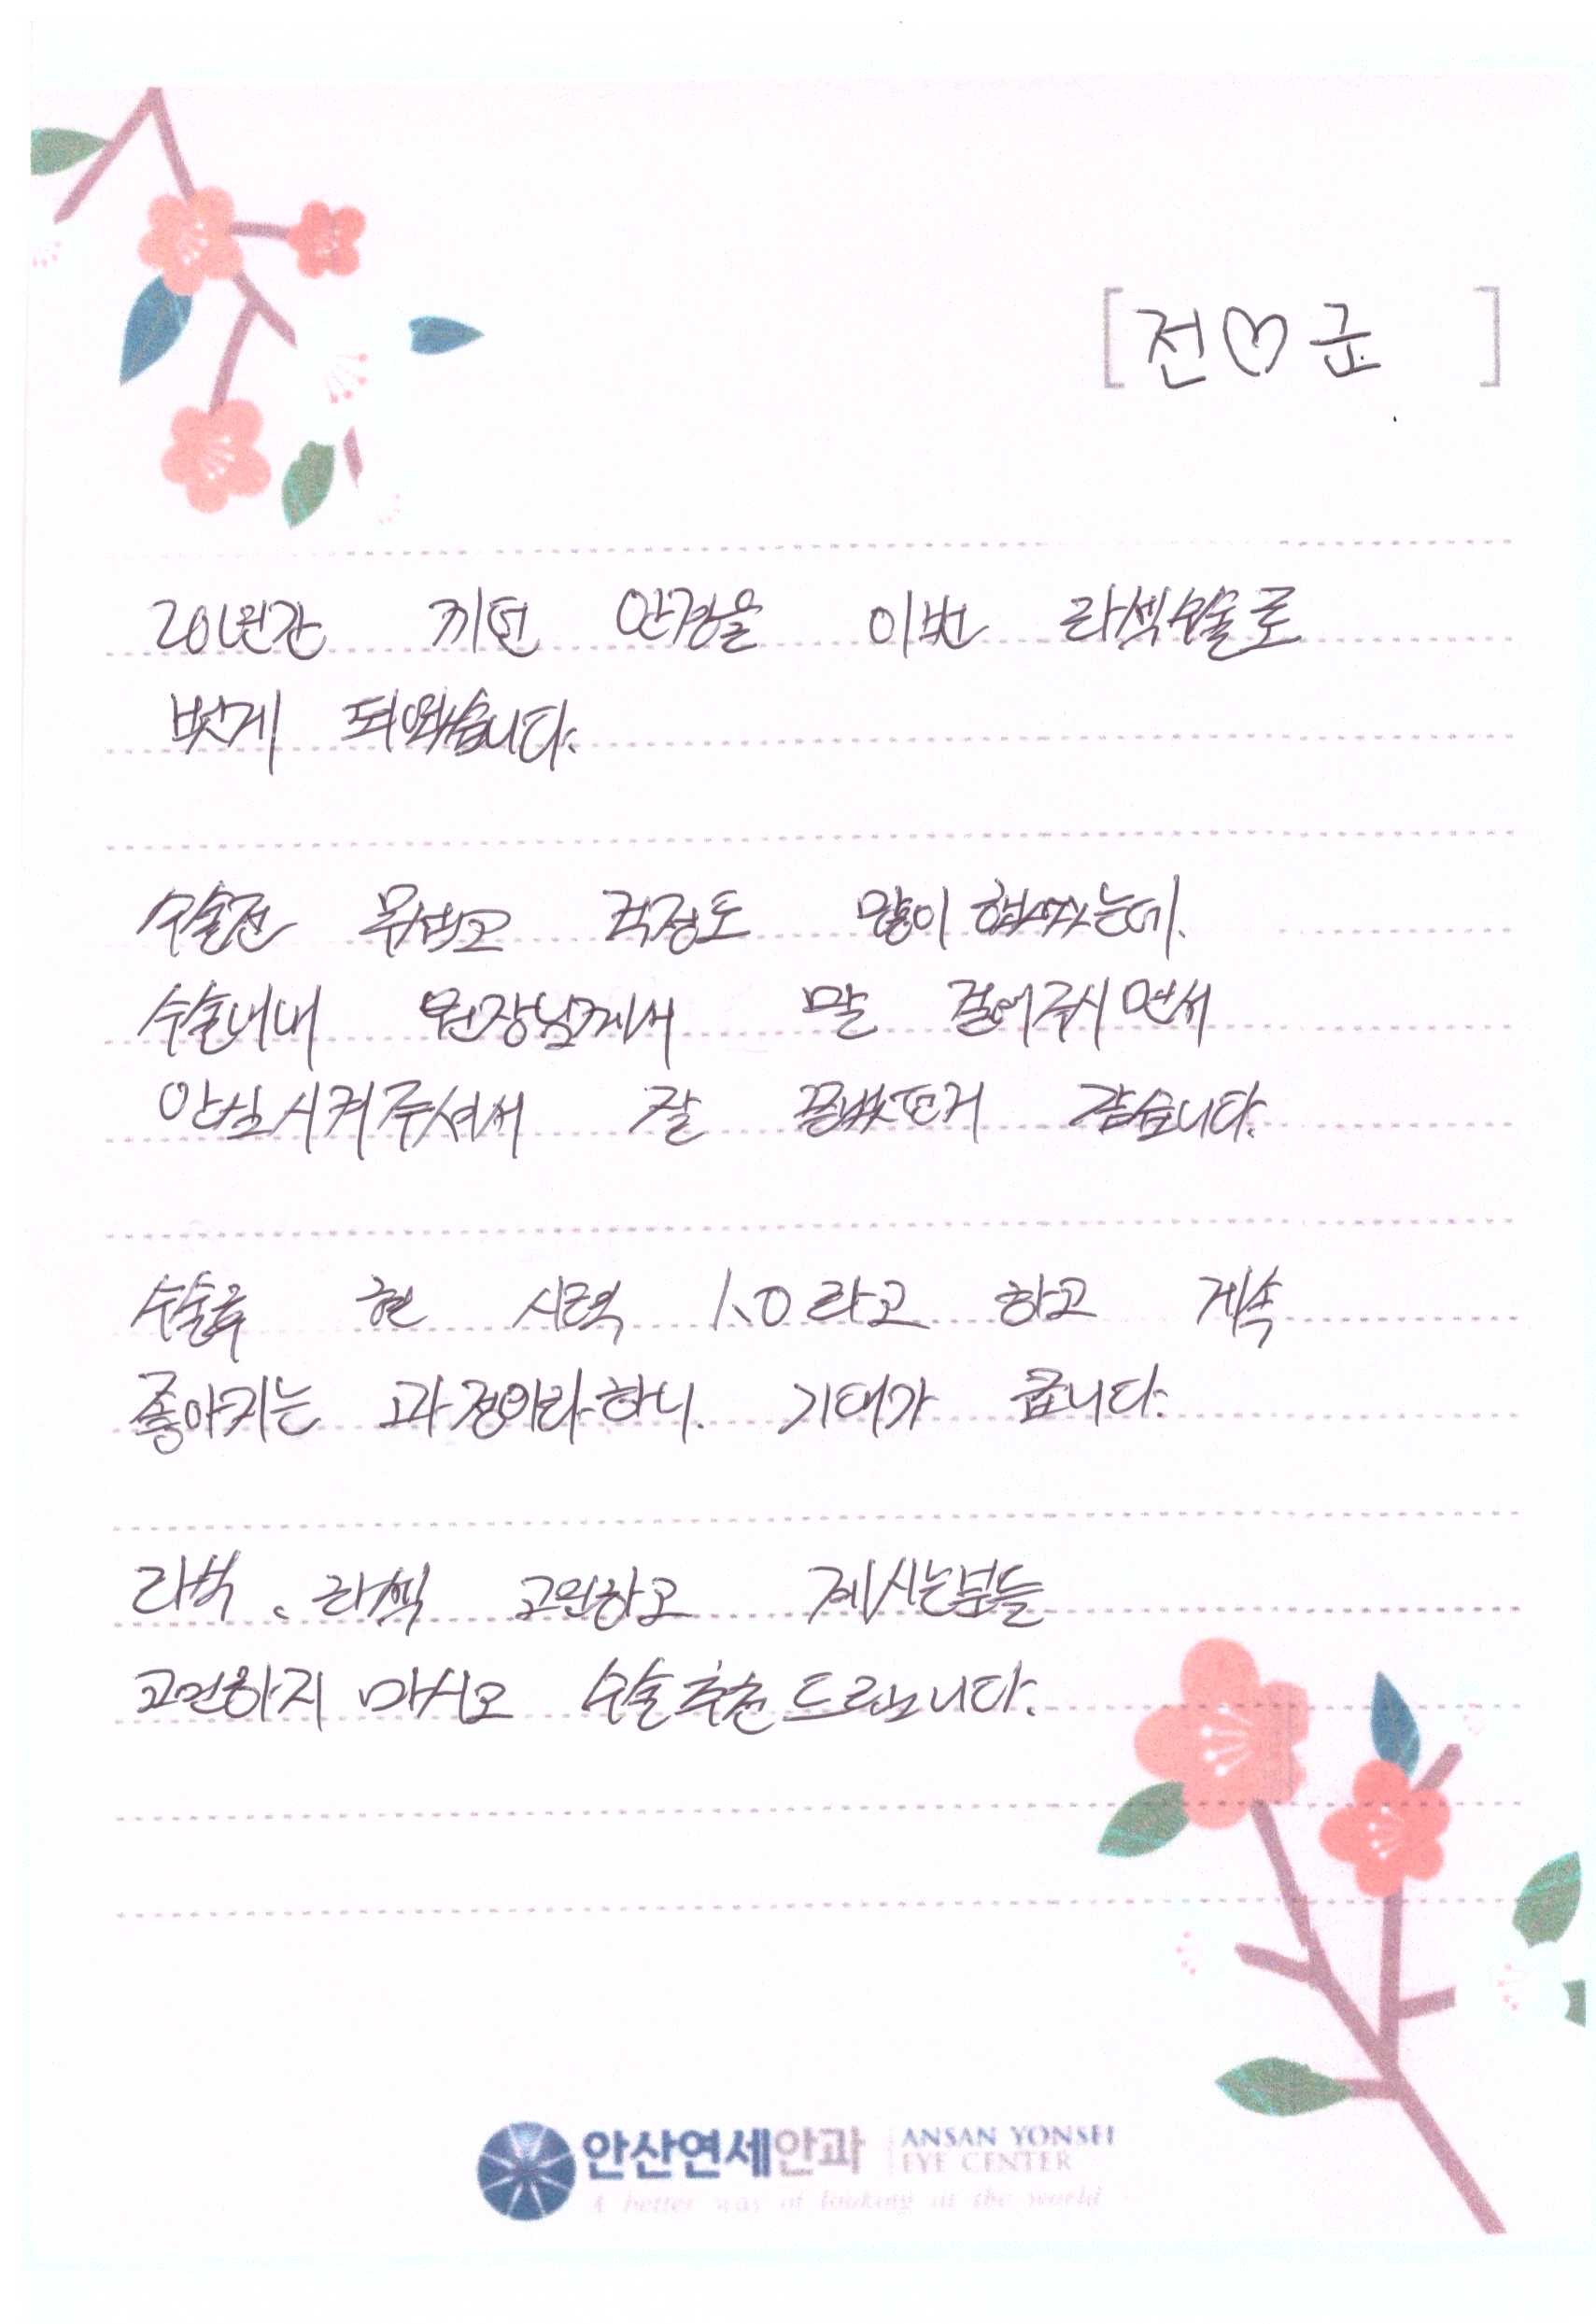 [전♡균]
20년간 끼던 안경을 이번 라섹수술로
벗게 되었습니다.
수술전 무섭고 걱정도 많이 했었는데.
수술내내 원장님께서 말 걸어주시면서
안심시켜주셔서 잘 끝났던거 같습니다.
수술후 현 시력 1.0라고 하고 계속
좋아지는 과정이라하니. 기대가 큽니다.
라식、라섹 고민하고 계시는분들
고민하지 마시고 수술추천드립니다.
안산연세안과 ANSAN YONSEI
EYE CENTER
A better way of looking at the world